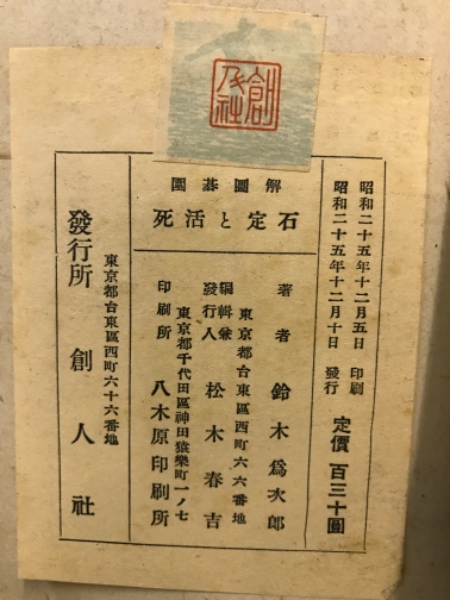 創人社
圍碁圖解
死活と定石
昭和二十五年十二月五日 印刷
昭和二十五年十二月十日 發行
定價 百三十圓
著者 鈴木爲次郎
東京都台東區西町六六番地
編輯兼
發行人 松木春吉
東京都千代田區神田猿樂町一ノ七
印刷所 八木原印刷所
東京都台東區西町六十六番地
發行所 創人社